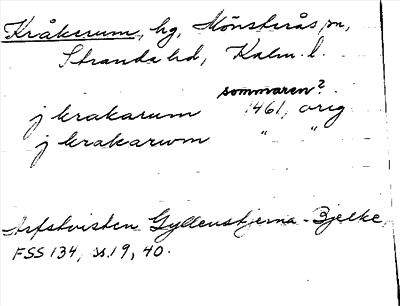 Kråkerum, hg, Mönsterås sn,
Stranda hd, Kalm. l.
sommaren?
j krakarum 1461, orig
j krakarwm " "
Arfstvisten Gyllenstjerna - Bjelke,
FSS 134, ss. 19, 40.